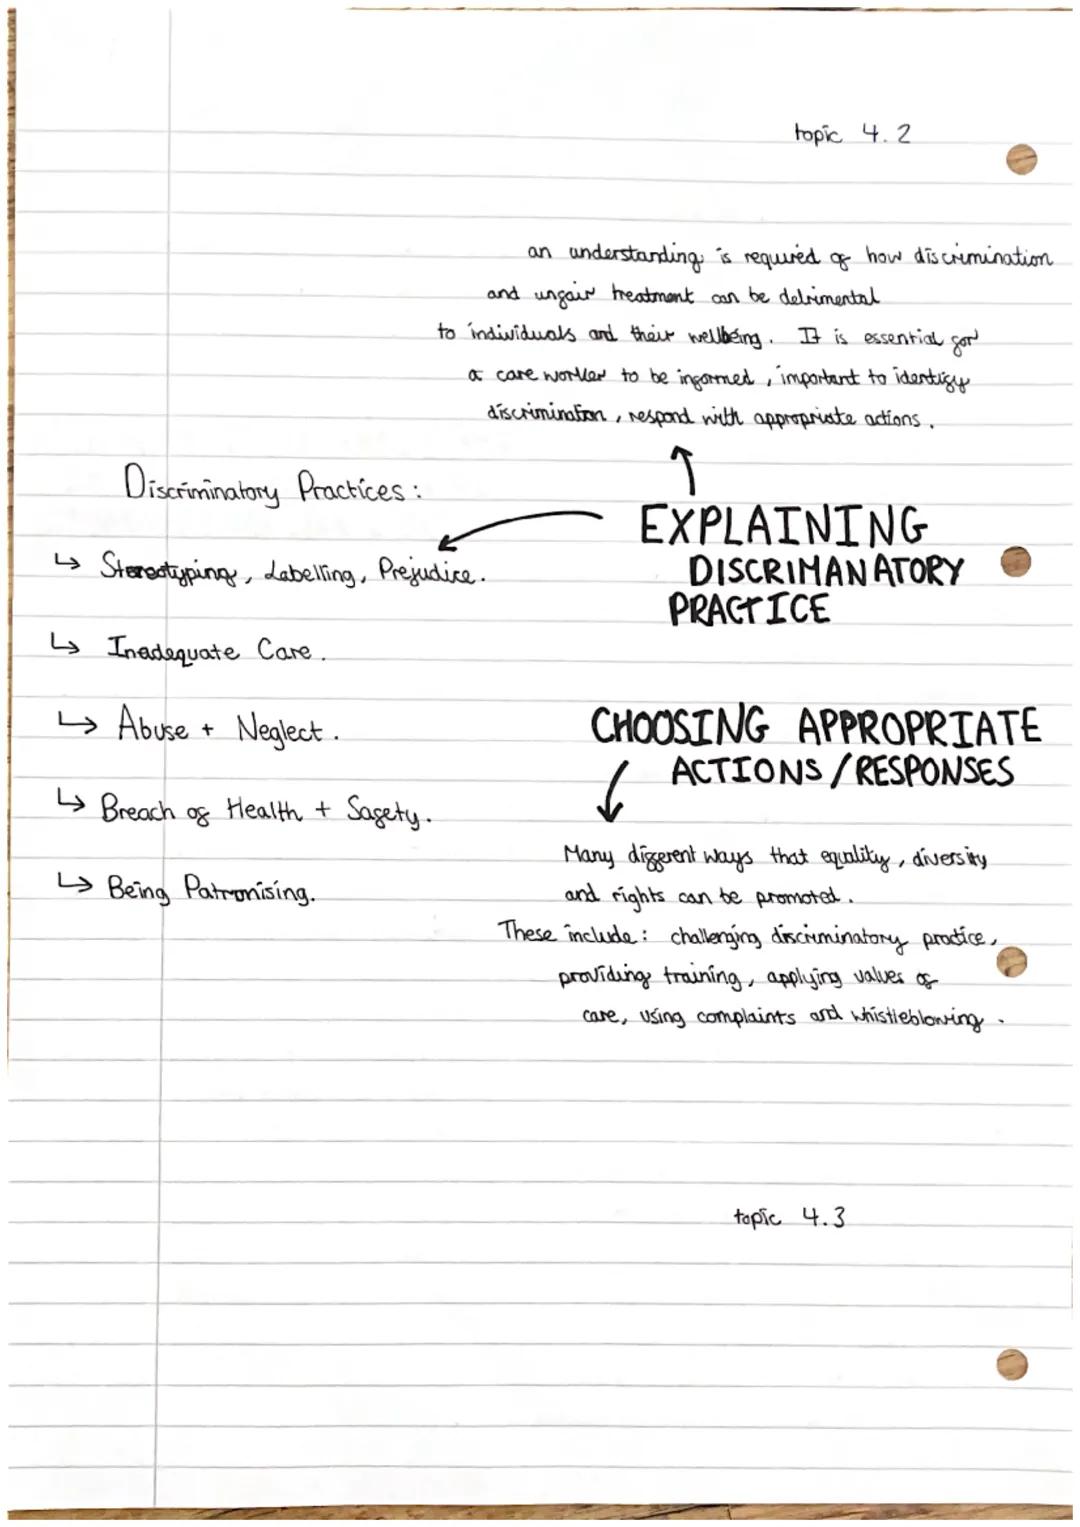 topic 4.2
an understanding is required of how discrimination
and unfair treatment can be detrimental
to individuals and their wellbeing. It is essential for
a care worker to be informed, important to identify
discrimination, respond with appropriate actions.
EXPLAINING
DISCRIMANATORY
PRACTICE
Discriminatory Practices:
↳ Stereotyping, Labelling, Prejudice.
↳ Inadequate Care.
↳ Abuse + Neglect.
↳ Breach of Health + Safety.
↳ Being Patronising.
CHOOSING APPROPRIATE
ACTIONS/RESPONSES
Many different ways that equality, diversity
and rights can be promoted.
These include: challenging discriminatory practice,
providing training, applying values of
care, using complaints and whistleblowing.
topic 4.3